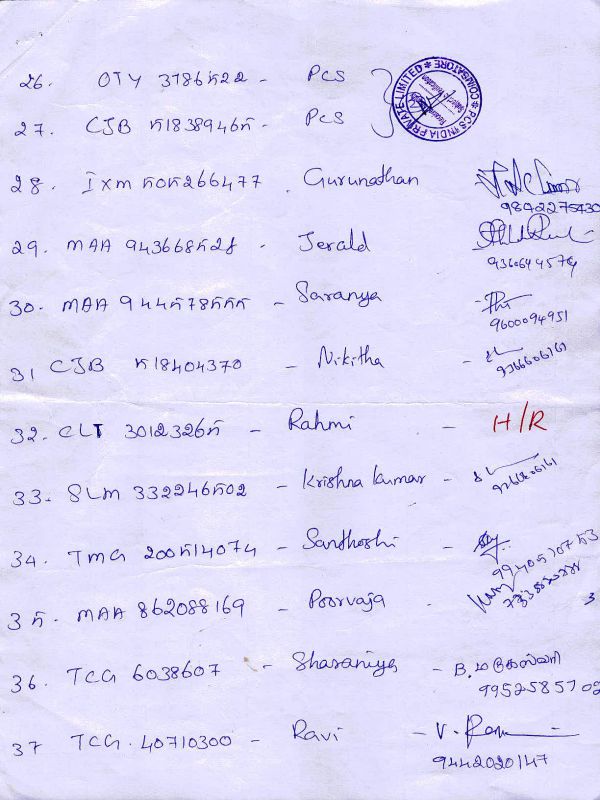 26. OTY 3786522 - PCS
PCS INDIA PRIVATE LIMITED * COIMBATORE *
27. CJB 518389465 - PCS
28. IXM 505266477 . Gurunathan
9842275430
29. MAA 943668528 . Jerald
9360644579
30. MAA 944578555 - Saranya
9600094951
31 CJB 518404370 - Nikitha -
9366606161
32. CLT 30123265 - Rahmi - H/R
33. SLM 332246502 - Krishna Kumar -
34. TMG 200514074 - Santhoshi -
9940510753
35. MAA 862088169 - Poorvaja -
3
36. TCG 6038607 - Sharaniya - B.
9952585702
37 TCG. 40710300 - Ravi - V.
9442020147